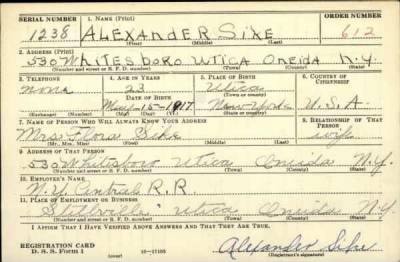 SERIAL NUMBER 1. NAME (Print) ORDER NUMBER
1238 ALEXANDER SIKE 612
(First) (Middle) (Last)
2. ADDRESS (Print)
530 WHITESBORO UTICA ONEIDA N.Y.
(Number and street or R. F. D. number) (Town) (County) (State)
3. TELEPHONE 4. AGE IN YEARS 5. PLACE OF BIRTH 6. COUNTRY OF CITIZENSHIP
none 23 Utica
DATE OF BIRTH (Town or county)
May-15-1917 New York U.S.A.
(Exchange) (Number) (Mo.) (Day) (Yr.) (State or country)
7. NAME OF PERSON WHO WILL ALWAYS KNOW YOUR ADDRESS 8. RELATIONSHIP OF THAT PERSON
Mrs. Flora Sike wife
(Mr., Mrs., Miss) (First) (Middle) (Last)
9. ADDRESS OF THAT PERSON
530 Whitesboro Utica Oneida N.Y.
(Number and street or R. F. D. number) (Town) (County) (State)
10. EMPLOYER'S NAME
N.Y. Central R.R.
11. PLACE OF EMPLOYMENT OR BUSINESS
Utica Oneida N.Y.
(Number and street or R. F. D. number) (Town) (County) (State)
I AFFIRM THAT I HAVE VERIFIED ABOVE ANSWERS AND THAT THEY ARE TRUE.
REGISTRATION CARD
D. S. S. Form 1 (over) Alexander Sike
(Registrant's signature)